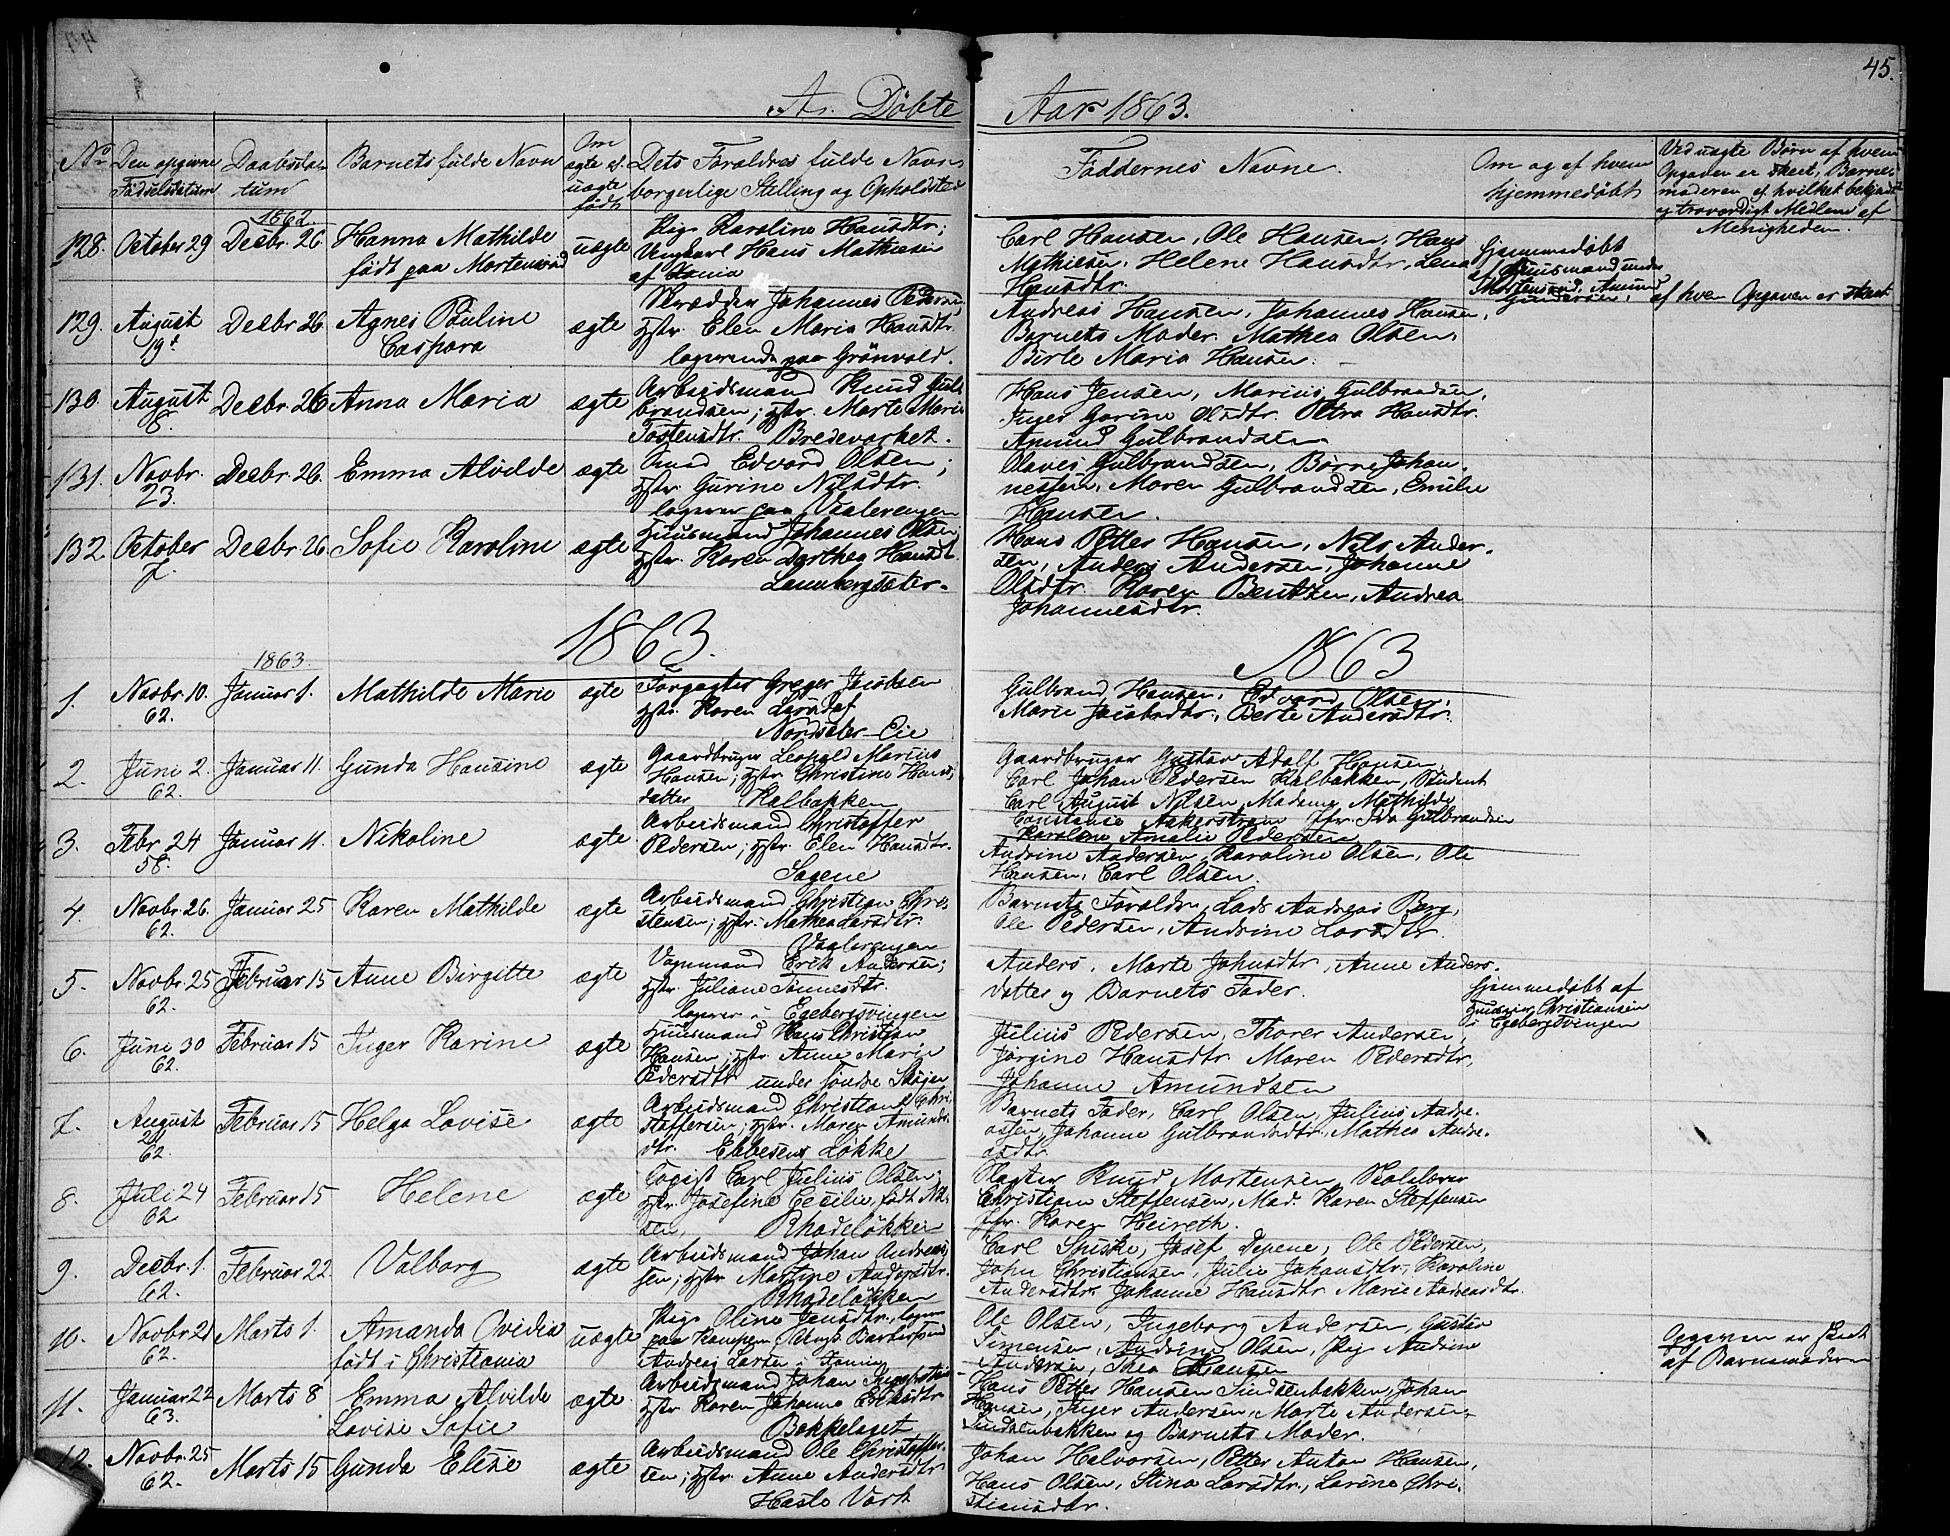 45.
Døbte Aar 1863.
No
Den opgivne Fødselsdatum
Daabsdatum
Barnets fulde Navn
Om ægte el. uægte født
Dets Forældres fulde Navn borgerlige Stilling og Opholdsted
Faddernes Navne.
Om og af hvem hjemmedøbt
Ved uægte Børn af hvem Opgaven er skeet, Barnemoderen ej hvilket bekjendt og troværdigt Medlem af Menigheden.
1862
128. October 29 Decbr. 26 Hanna Mathilde
født paa Mortensrud
uægte
Pige Karoline Hansdtr;
Ungkarl Hans Mathiesen
af
Carl Hansen, Ole Hansen, Hans
Mathiesen, Helene Hansdtr, Lena
Hansdtr.
hjemmedøbt
af Huusmand under
Mortensrud, Amund
Gundersen,
af hvem Opgaven er skeet
129. August 19 Decbr 26 Agnes Pauline
Caspara
ægte
Skrædder Johannes Pedersen,
hstr. Elen Maria Hansdtr.
logerende paa Grönvold.
Andreas Hansen, Johannes Hansen,
Barnets Moder. Mathea Olsen,
Birte Maria Hansen.
130. August 8. Decbr. 26 Anna Maria
ægte
Arbeidsmand Knud Gulbrandsen; hstr. Marte Marie
Tostensdtr. Bredevarket.
Hans Jensen, Marius Gulbrandsen,
Inger Gorine Olsdtr. Petra Hansdtr.
Amund Gulbrandsen
131. Novbr. 23. Decbr. 26. Emma Alvilde
ægte
Smed Edvard Olsen;
hstr. Gurine Nilsdtr.
logerer paa Vaalerengen
Olaves Gulbrandsen, Børre Johannessen, Maren Gulbrandsen, Emilie
Hansen.
132. October 7. Decbr 26 Sofie Karoline
ægte
Huusmand Johannes Olsen,
hstr. Karen Dorthea Hansdt.
Hans Petter Hansen, Nils Andersen, Anders Andersen, Johanne
Olsdtr. Karen Bentsen, Andrea
Johannesdtr.
1863. 1863
1863.
1. Novbr. 10. 62. Januar 1. Mathilde Marie
ægte
Forpagter Greger Jacobsen
hstr. Karen Larsdat
Nordsæter Eie
Gulbrand Hansen, Edvard Olsen,
Marie Jacobsdtr, Berte Andersdtr.
2. Juni 2. 62. Januar 11. Gunda Hansine
ægte
Gaardbruger Leopold Marius
Hansen; hstr. Christine Hansdatter Kalbakken
Gaardbruger Gustav Adolf Hansen,
Carl Johan Pedersen Kalbakken, Student
Carl August Nilsen, Madame Mathilde
Constanse Akerstrøm Jfr. Ida Gulbrandsen
Karoline Amalie Pedersen
3. Febr 24 58. Januar 11. Nikoline
ægte
Arbeidsmand Christoffer
Pedersen; hstr. Elen Hansdtr.
Sagene
Andrine Andersen, Karoline Olsen, Ole
Hansen, Carl Olsen.
4. Novbr. 26. 62. Januar 25 Karen Mathilde
ægte
Arbeidsmand Christian Christensen; hstr. Mathea Larsdtr.
Vaalerengen
Barnets Forældre, Lads Andreas Berg,
Ole Pedersen, Andrine Larsdtr.
5. Novbr. 25 62. Februar 15 Anne Birgitte
ægte
Vognmand Erik Andersen;
hstr. Juliane Tønnesdtr.
logerer i Egebergsvingen
Anders. Marte Johnsdtr, Anne Andersdatter og Barnets Fader.
hjemmedøbt af
Christiansen
i Egebergsvingen
6. Juni 30 62. Februar 15 Inger Karine
ægte
Huusmand Hans Christian
Hansen; hstr. Anne Marie
Pedersdtr under Søndre Skøjen
Julius Pedersen, Thorer Andersen,
Jørgine Hansdtr. Maren Pedersdtr,
Johanne Amundsen
7. August 21 62. Februar 15 Helga Lovise
ægte
Arbeidsmand Christian Christoffersen; hstr. Maren Amundsdtr. Ebbesens Løkke
Barnets Fader, Carl Olsen, Julius Andreasen, Johanne Gulbrandsdtr, Mathea Andreasdtr.
8. Juli 24 62. Februar 15 Helene
ægte
Logist Carl Julius Olsen;
hstr. Josefine Cecilie, født Nilsen, Rhodeløkken
Slagter Knud Mortensen, Skolelærer
Christian Steffensen, Mad. Karen Steffensen
Jfr. Karen Heireth.
9. Decbr. 1. 62. Februar 22 Valborg
ægte
Arbeidsmand Johan Andreassen; hstr. Martine Andersdtr.
Rhodeløkken
Carl Spiske, Josef Depene, Ole Pedersen,
John Christiansen, Julie Johansdtr, Karoline
Andersdtr. Johanne Hansdtr Marie Andersdtr.
10. Novbr. 21 62. Marts 1. Amanda Ovidia
født i Christiania
uægte
Pige Oline Jensdtr., loger
paa Kampen Barbersvend
Andreas Larsen i
Ole Olsen, Ingeborg Andersen, Gustav
Simensen, Andrine Olsen, Pige Andrine
Andersen, Thea Hansen
Opgaven er skeet
af Barnemoderen
11. Januar 22 63. Marts 8 Emma Alvilde
Lovise Sofie
ægte
Arbeidsmand Johan
hstr Karen Johanne Eriksdtr
Bækkelaget
Hans Petter Hansen Sindsenbakken, Johan
Hansen, Inger Andersen, Marte Andersen
Sindsenbakken og Barnets Moder.
12. Novbr. 25 62. Marts 15 Gunda Elise
ægte
Arbeidsmand Ole Christoffersen; hstr. Anne Andersdtr
Hasle Værk
Johan Halvorsen, Petter Anton Hansen,
Hans Olsen, Stina Larsdtr., Lorine Christiansdtr.